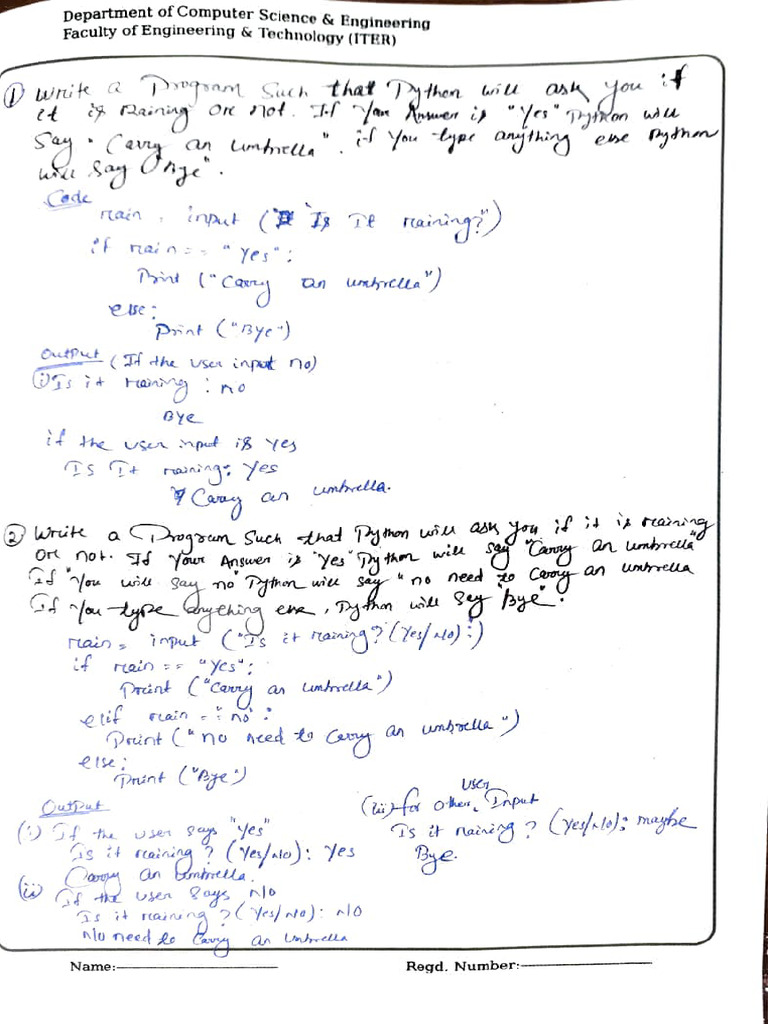 Department of Computer Science & Engineering
Faculty of Engineering & Technology (ITER)
① Write a Program Such that Python will ask you if
it is Raining or not. If Your Answer is "Yes" Python will
Say "Carry an umbrella". if You type anything else Python
will say "Bye".
Code
rain = input ("Is It raining?")
if rain == "yes":
Print ("Carry an umbrella")
else:
Print ("Bye")
Output (If the user input no)
(i) Is it raining : no
Bye
if the user input is yes
Is It raining: Yes
Carry an umbrella.
② Write a Program Such that Python will ask you if it is raining
or not. If Your Answer is "Yes" Python will say "Carry an umbrella"
If "You will say no" Python will say "no need to Carry an umbrella
If You type anything else, Python will say "Bye".
rain = input ("Is it raining? (Yes/No) :)
if rain == "Yes":
Print ("Carry an umbrella")
elif rain = "no":
Print ("no need to Carry an umbrella")
else:
Print ("Bye")
Output
(i) If the user says "Yes"
Is it raining? (Yes/No): Yes
Carry an Umbrella.
(ii) If the user says No
Is it raining? (Yes/No): No
No need to Carry an Umbrella
(iii) for other user Input
Is it raining? (Yes/No): maybe
Bye.
Name:
Regd. Number: